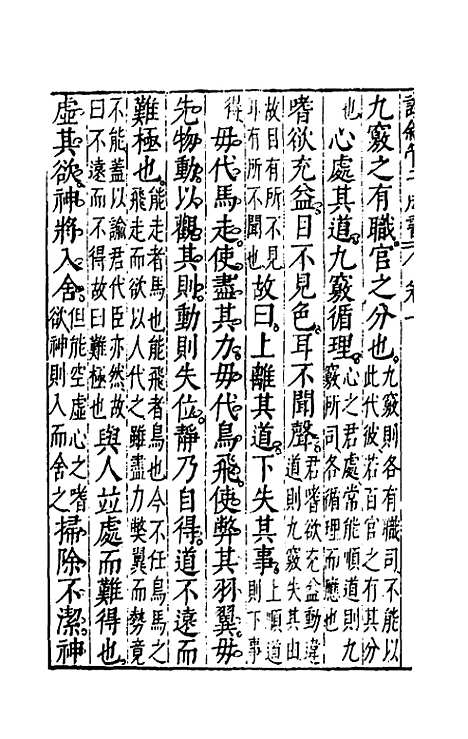 九竅之有職官之分也九竅則各有職司不能以此代彼若百官之有其分
也心處其道九竅循理心之君處常能順道則九竅所司各循理而應也
嗜欲充益目不見色耳不聞聲君嗜欲充益動違道則九竅失其由
故目有所不見耳有所不聞也故曰上離其道下失其事上順道則下事
得毋代馬走使盡其力毋代鳥飛使弊其羽翼毋
先物動以觀其則動則失位靜乃自得道不遠而
難極也能走者馬也能飛者鳥也今不任鳥馬之飛走而欲以人代之雖盡力獘翼而勢竟
不能蓋以諭君代臣亦然故曰不遠而不得故曰難極也與人竝處而難得也
虛其欲神將入舍但能空虛心之嗜欲神則入而舍之掃除不潔神